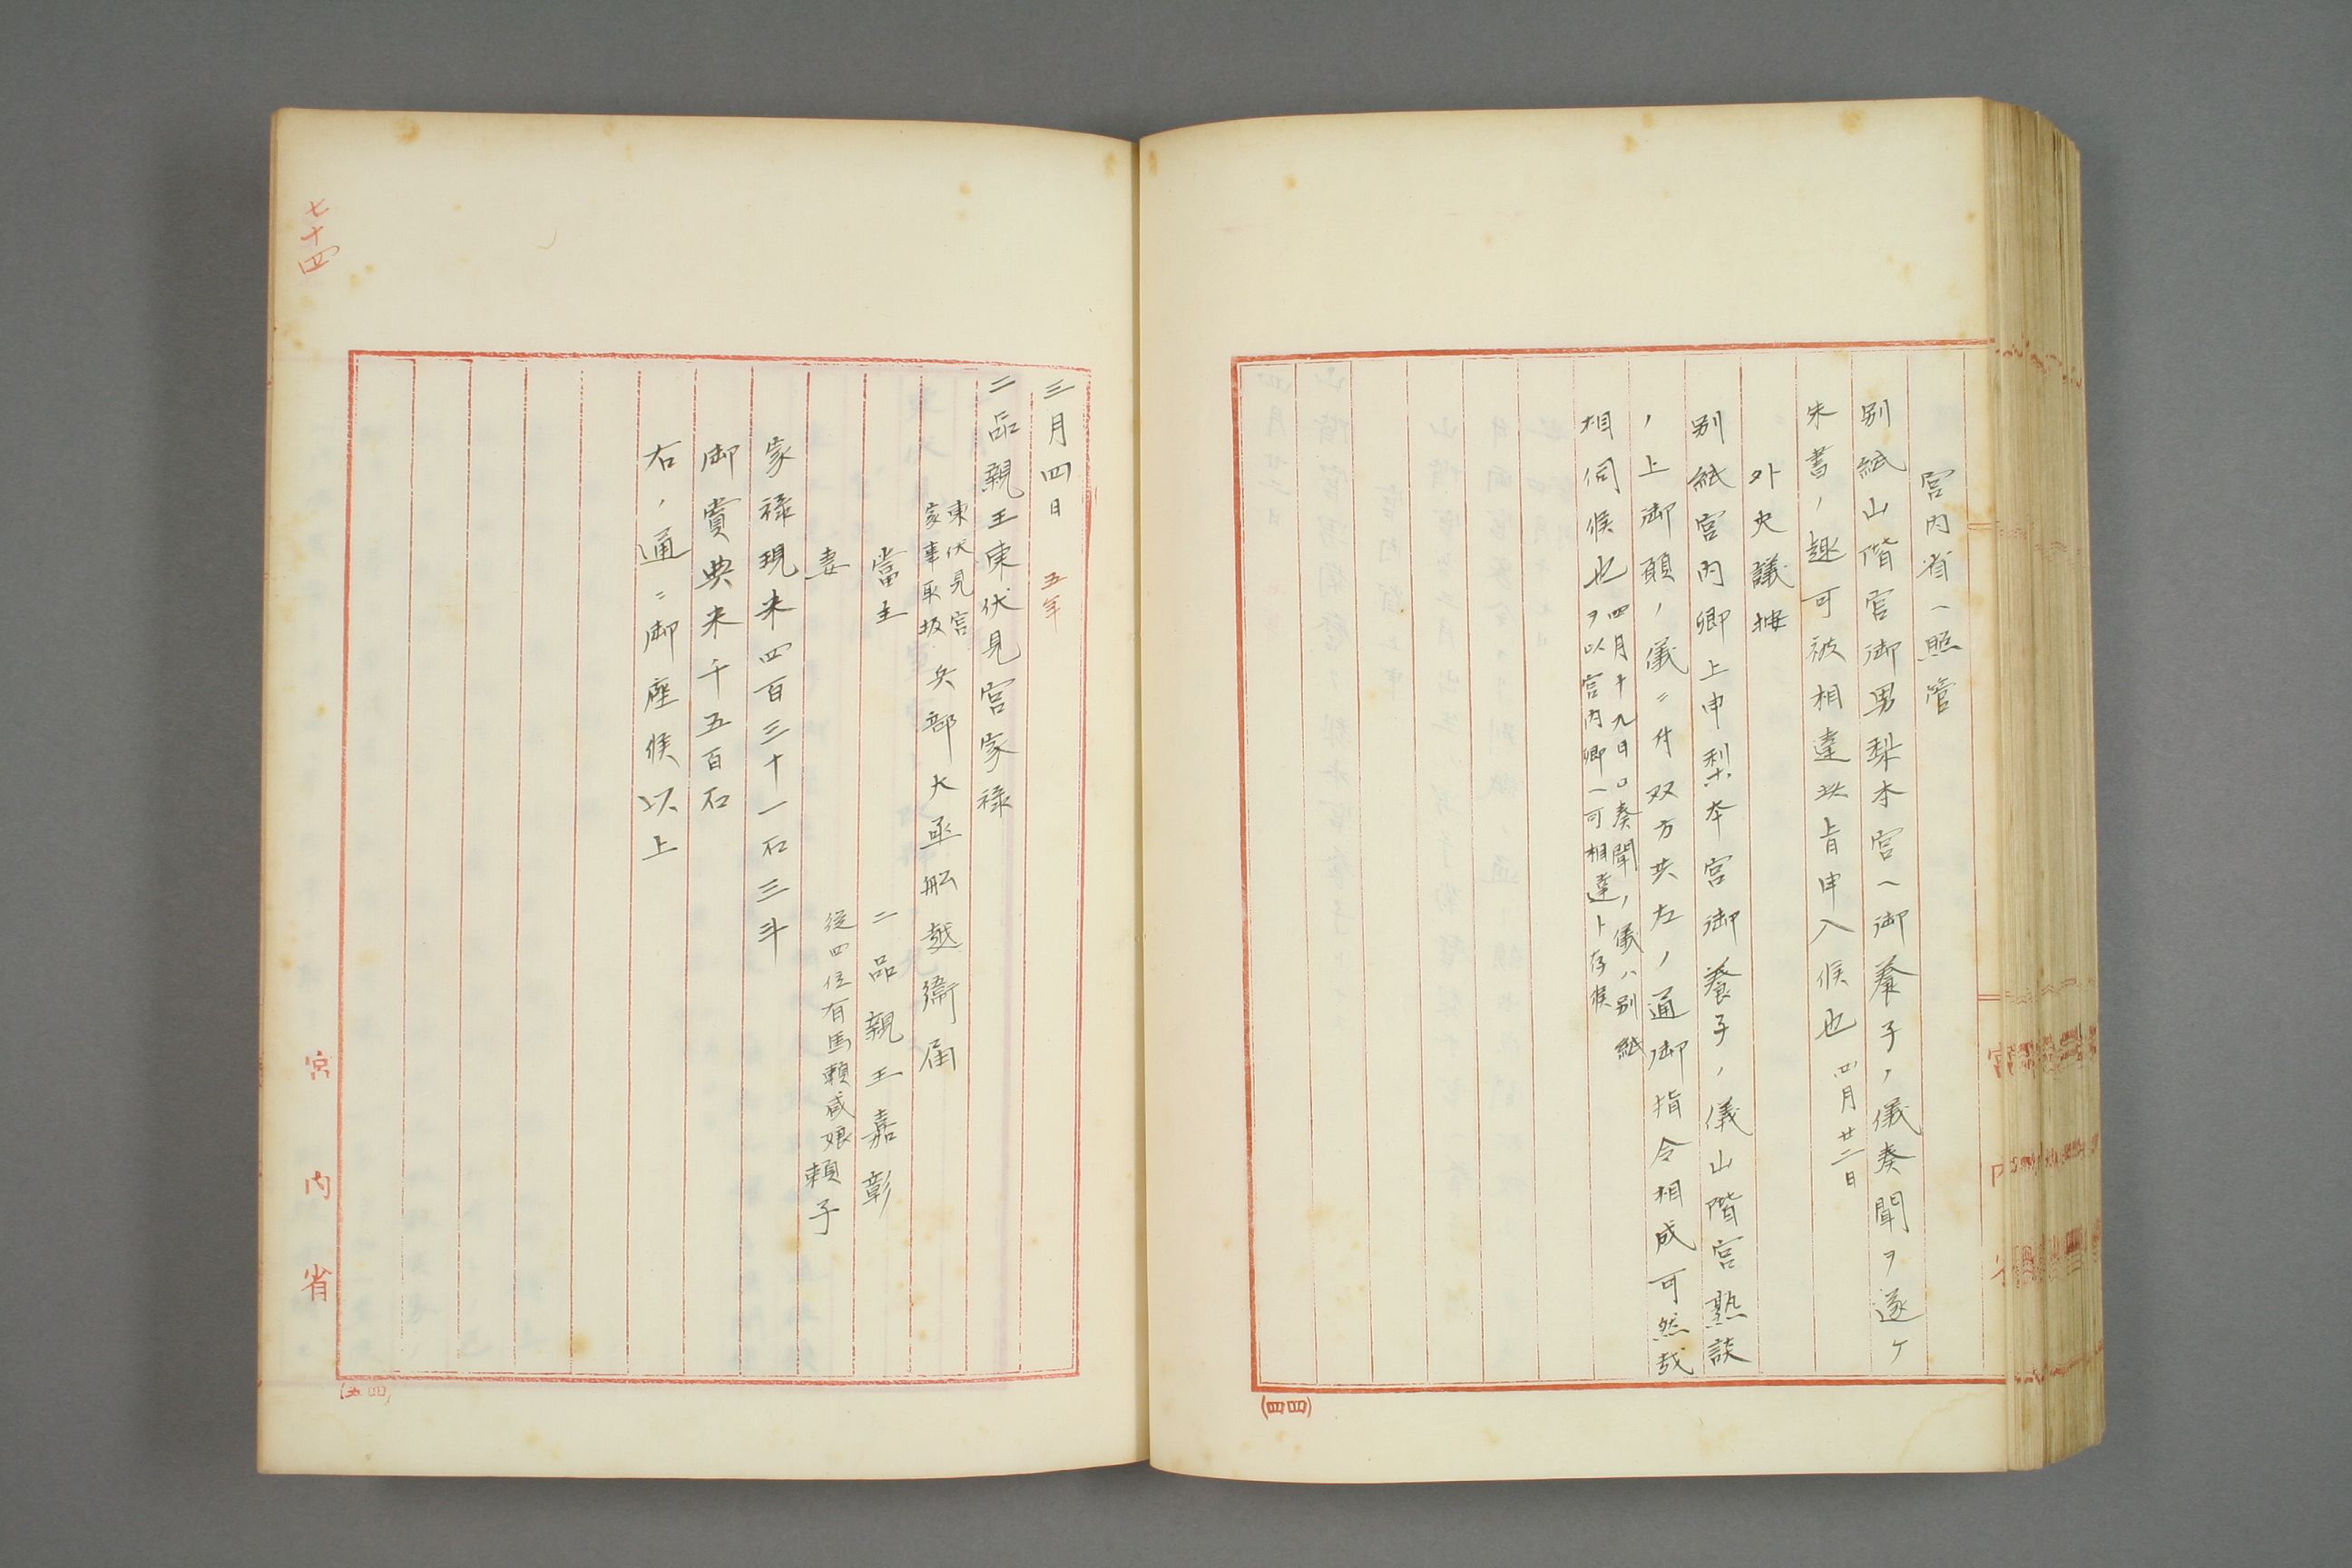 宮内省ヘ照管
別紙山階宮御男梨本宮ヘ御養子ノ儀奏聞ヲ遂ケ
朱書ノ趣可被相達此旨申入候也 四月廿二日
外史議按
別紙宮内卿上申梨本宮御養子ノ儀山階宮熟談
ノ上御願ノ儀ニ付双方共左ノ通御指令相成可然哉
相伺候也 四月十九日
奏聞ノ儀ハ別紙
ヲ以宮内卿ヘ可相達ト存候
(四四)
三月四日 五年
二品親王東伏見宮家禄
東伏見宮
家事取扱 兵部大丞船越衞届
當主 二品親王嘉彰
妻 従四位有馬頼咸娘頼子
家禄現米四百三十一石三斗
御賞典米千五百石
右ノ通ニ御座候以上
七十四
宮内省
(四五)